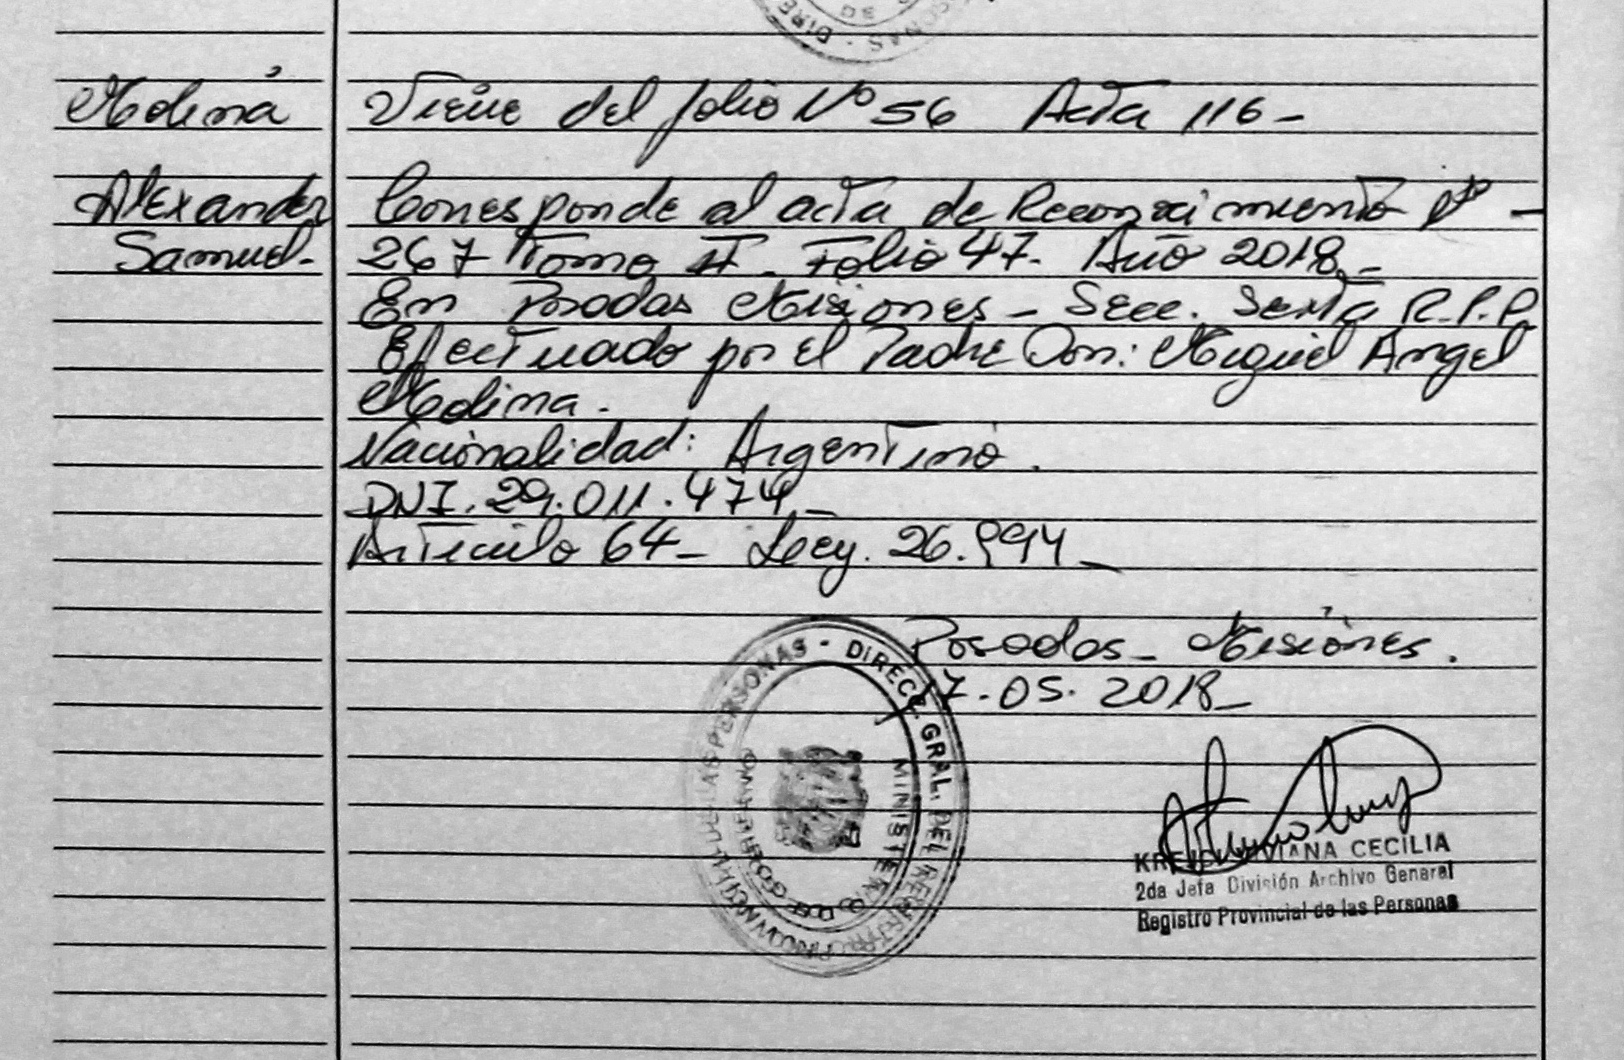 Molina
Viene del folio Nº 56 Acta 116-
Alexander
Samuel-
Corresponde al acta de Reconocimiento Nº -
267 Tomo II - Folio 47- Año 2018.-
En Posadas Misiones - Secc. Sexta R.P.P.
Efectuado por el Padre Don: Miguel Angel
Molina.
Nacionalidad: Argentino.
DNI. 29.011.474.-
Articulo 64- Ley. 26.994-
Posadas- Misiones.
17-05-2018-
VIVIANA CECILIA
2da Jefa División Archivo General
Registro Provincial de las Personas
DIRECC. GRAL. DEL REGISTRO PROVINCIAL DE LAS PERSONAS -
MINISTERIO DE GOBIERNO